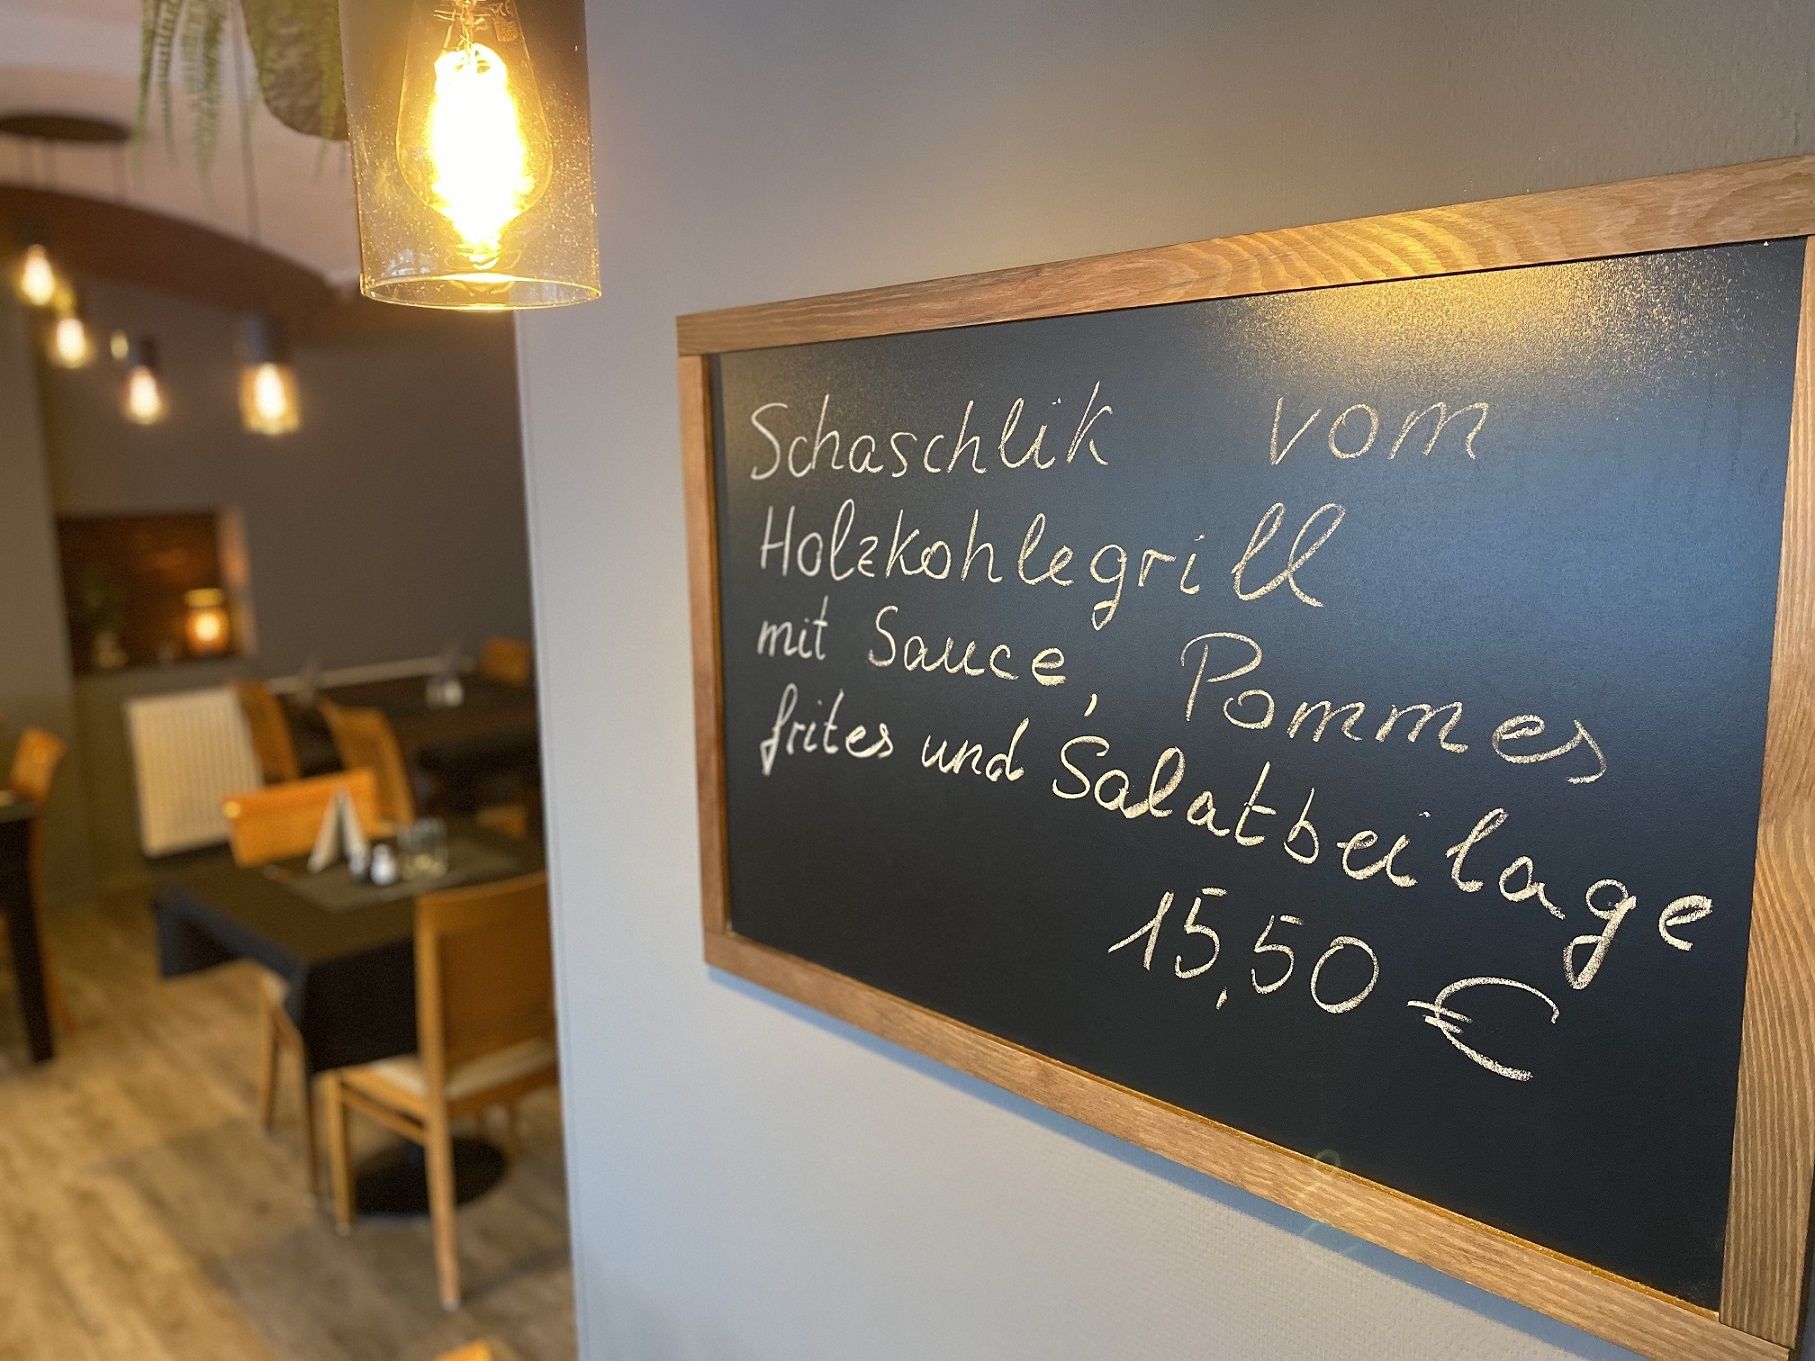 Schaschlik vom
Holzkohlegrill
mit Sauce, Pommes
frites und Salatbeilage
15,50 €